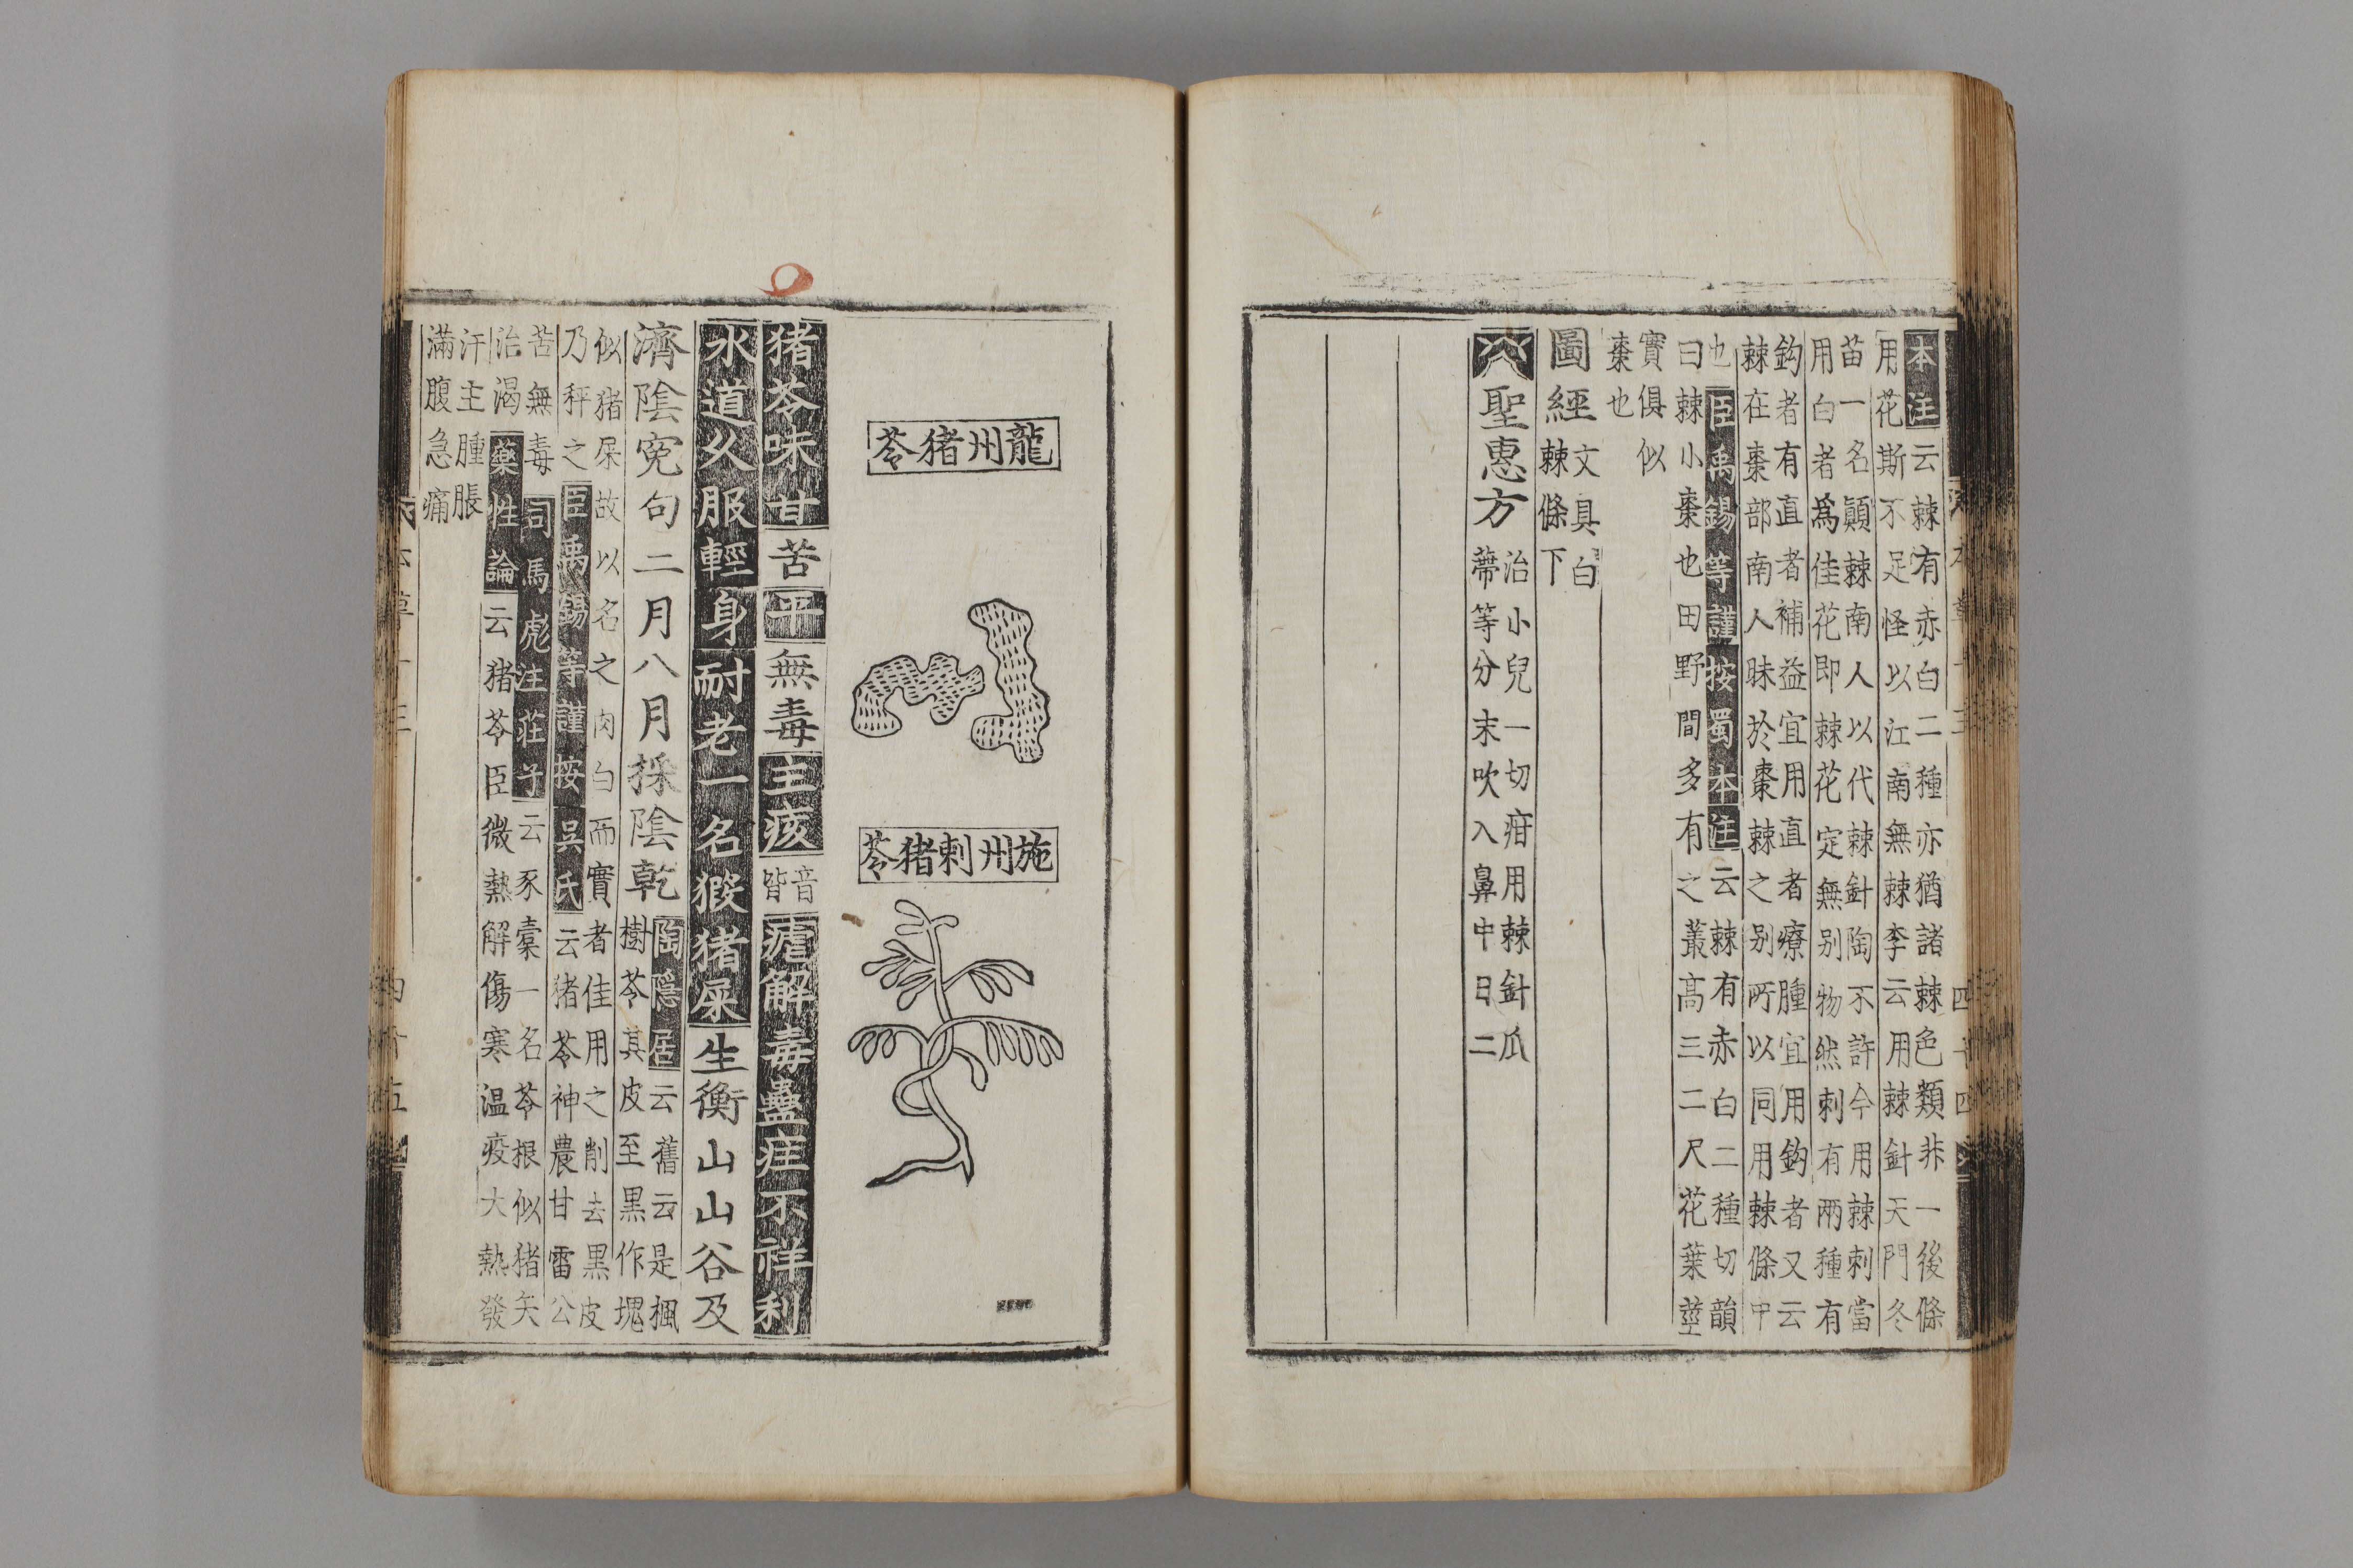 本注云棘有赤白二種亦猶諸棘色類非一後條
用花斯不足怪以江南無棘李云用棘針天門冬
苗一名顚棘南人以代棘針陶不許今用棘刺當
用白者爲佳花即棘花定無别物然刺有兩種有
鈎者有直者補益宜用直者療腫宜用鈎者又云
棘在棗部南人昧於棗棘之别所以同用棘條中
也臣禹錫等謹按蜀本注云棘有赤白二種切韻
曰棘小棗也田野間多有之叢高三二尺花葉莖
實俱似
棗也
圖經文具白
棘條下
聖惠方治小兒一切疳用棘針瓜
蔕等分末吹入鼻中日二
龍州猪苓
施州刺猪苓
猪苓味甘苦平無毒主痎音皆瘧解毒蠱疰不祥利
水道久服輕身耐老一名猳猪屎生衡山山谷及
濟陰寃句二月八月採陰乾陶隱居云舊云是楓
樹苓其皮至黒作塊
似猪屎故以名之肉白而實者佳用之削去黒皮
乃秤之臣禹錫等謹按吴氏云猪苓神農甘雷公
苦無毒司馬彪注莊子云豕橐一名苓根似猪矢
治渴藥性論云猪苓臣微熱解傷寒温疫大熱發
汗主腫脹
滿腹急痛